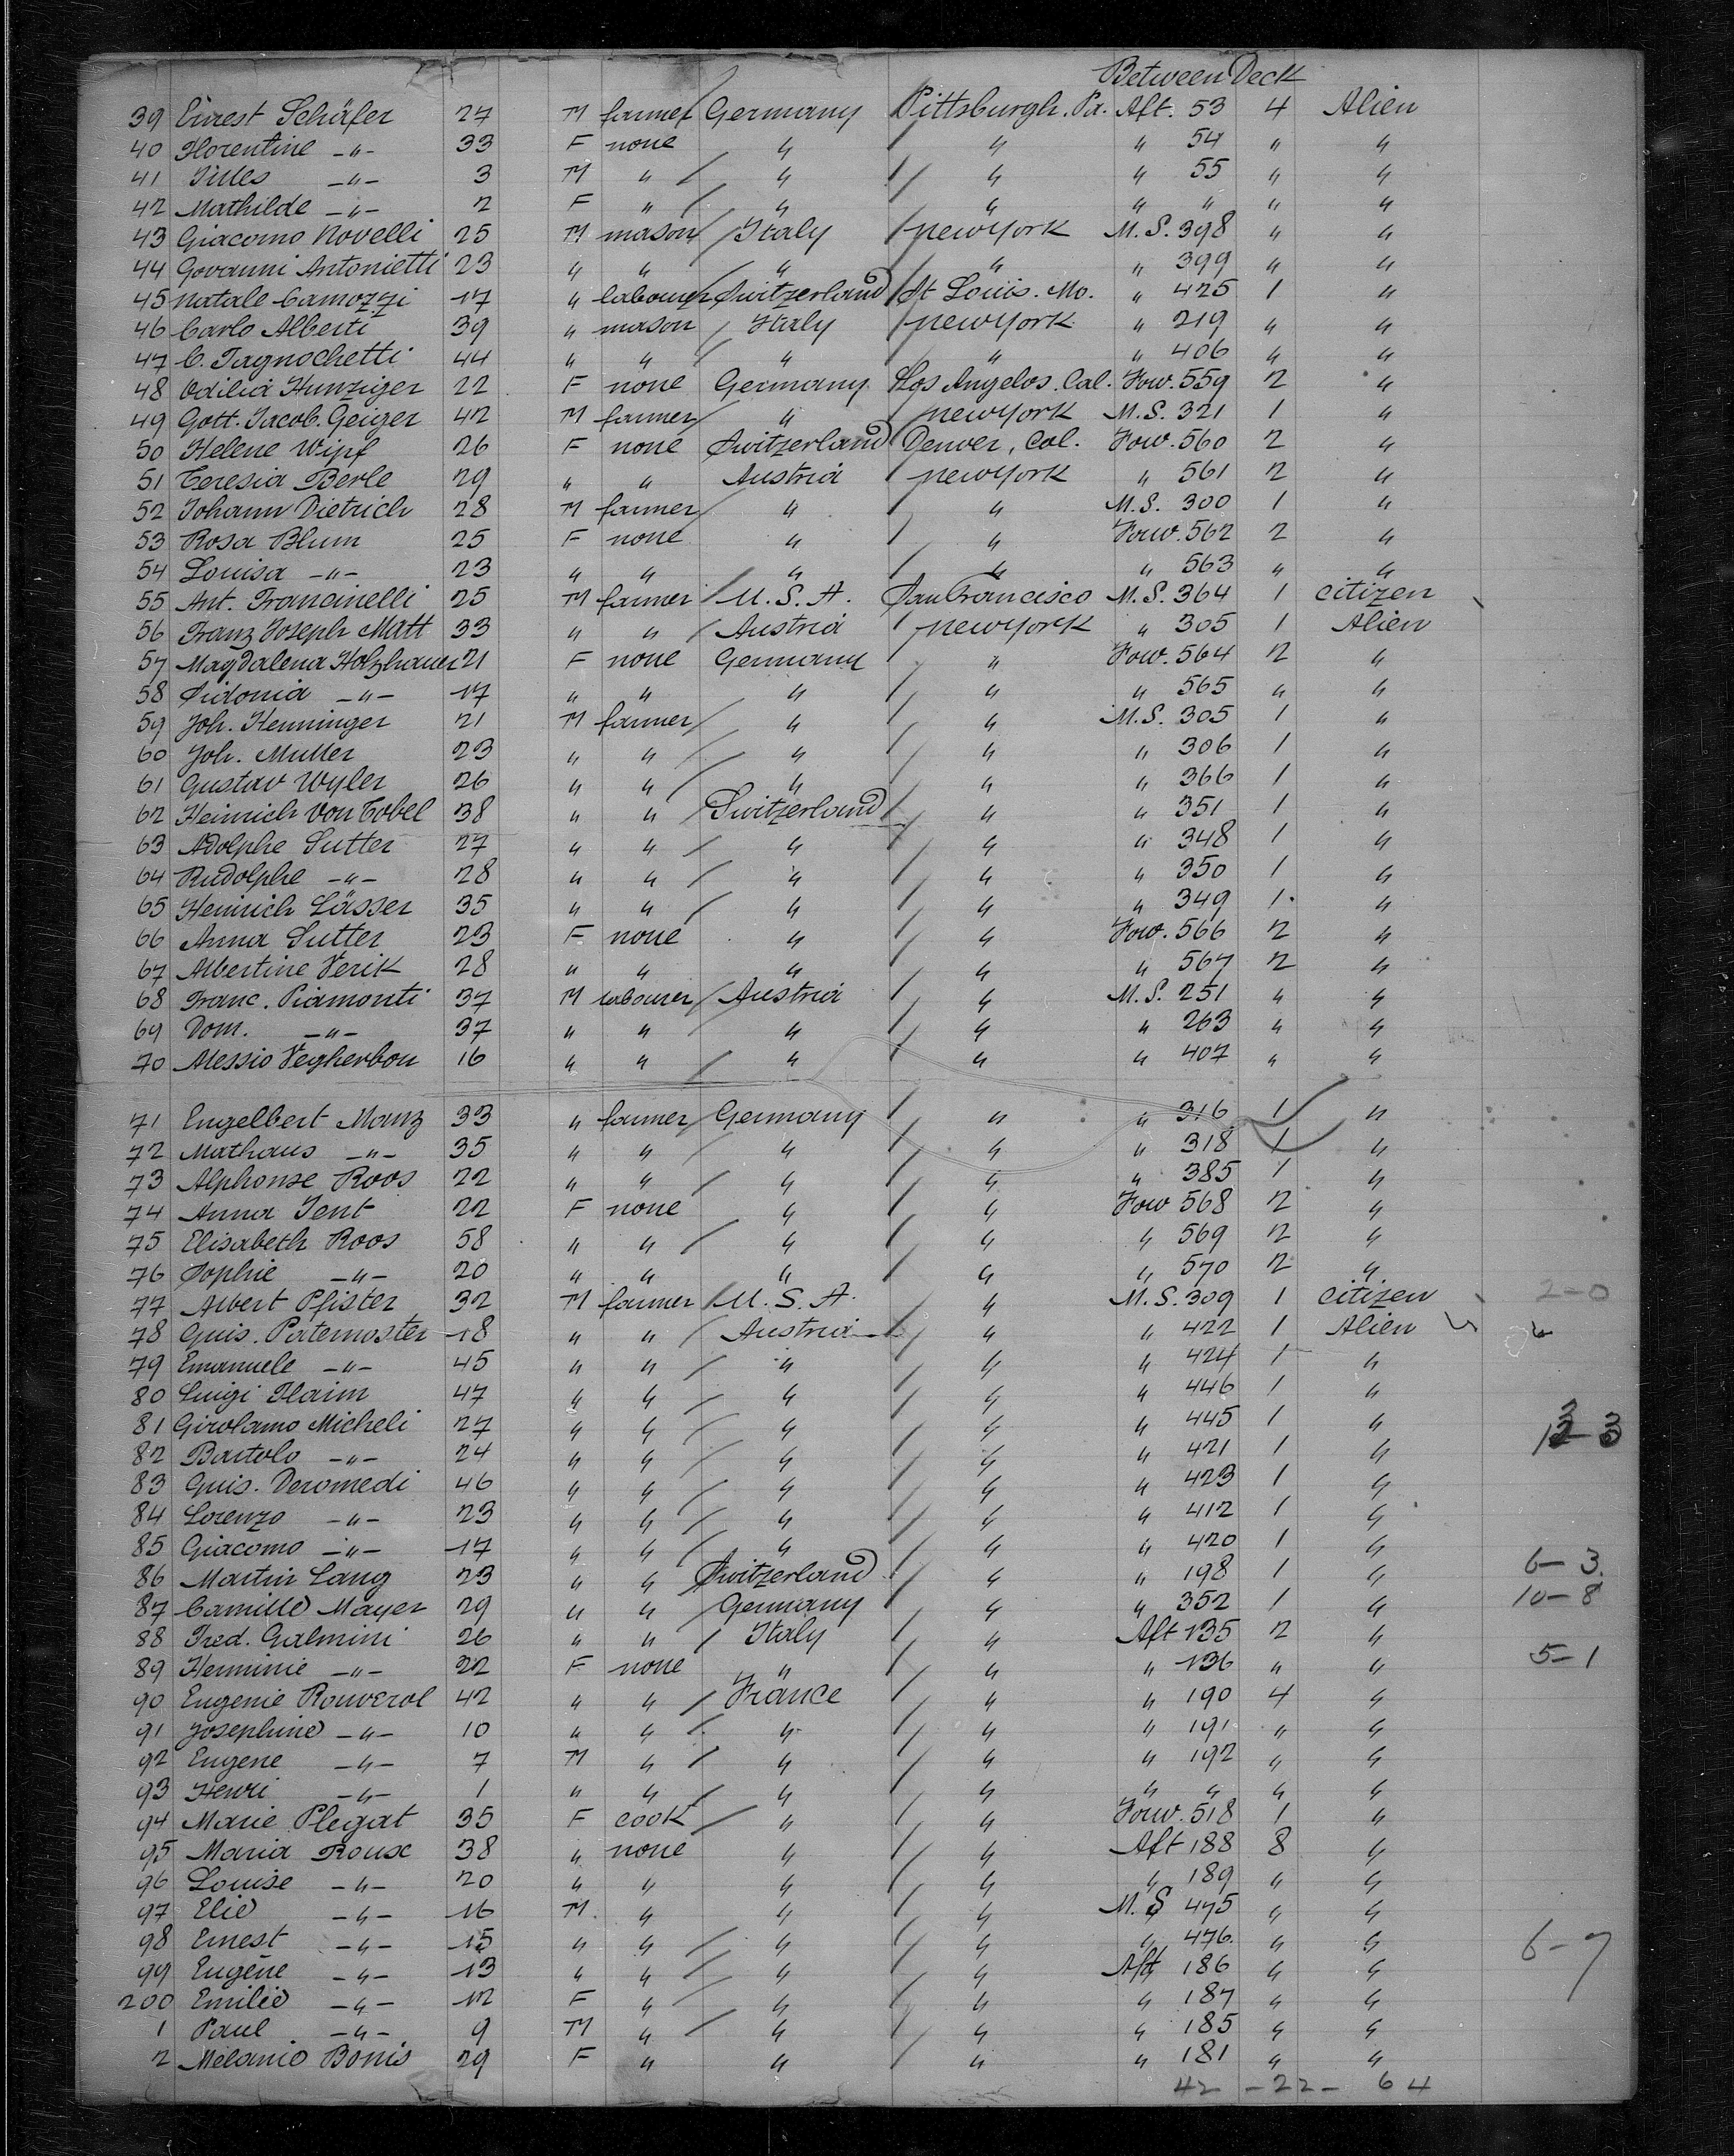 Between Deck
39 Ernest Schäfer 27 M farmer Germany Pittsburgh. Pa. Aft. 53 4 Alien
40 Florentine -"- 33 F none " " " 54 " "
41 Jules -"- 3 M " " " " 55 " "
42 Mathilde -"- 2 F " " " " " " "
43 Giacomo Novelli 25 M mason Italy New York M.S. 398 " "
44 Govanni Antonietti 23 " " " " " 399 " "
45 Natale Camozzi 17 " labourer Switzerland St Louis. Mo. " 425 1 "
46 Carlo Alberti 39 " mason Italy New York " 219 " "
47 C. Tagnochetti 44 " " " " " 406 " "
48 Odilia Hunziger 22 F none Germany Los Angelos. Cal. Fow. 559 2 "
49 Gott. Jacob. Geiger 42 M farmer " New York M.S. 321 1 "
50 Helene Wipf 26 F none Switzerland Denver, Col. Fow. 560 2 "
51 Teresia Berle 29 " " Austria New York " 561 2 "
52 Johann Dietrich 28 M farmer " " M.S. 300 1 "
53 Rosa Blum 25 F none " " Fow. 562 2 "
54 Louisa -"- 23 " " " " " 563 " "
55 Ant. Francinelli 25 M farmer U.S.A. San Francisco M.S. 364 1 citizen
56 Franz Joseph Matt 33 " " Austria New York " 305 1 Alien
57 Magdalena Holzhauer 21 F none Germany " Fow. 564 2 "
58 Sidonia -"- 17 " " " " " 565 " "
59 Joh. Henninger 21 M farmer " " M.S. 305 1 "
60 Joh. Muller 23 " " " " " 306 1 "
61 Gustav Wyler 26 " " " " " 366 1 "
62 Heinrich Von Tobel 38 " " Switzerland " " 351 1 "
63 Adolphe Sutter 27 " " " " " 348 1 "
64 Rudolphe -"- 28 " " " " " 350 1 "
65 Heinrich Lässer 35 " " " " " 349 1. "
66 Anna Sutter 23 F none " " Fow. 566 2 "
67 Albertine Verik 28 " " " " " 567 2 "
68 Franc. Piamonti 37 M labourer Austria " M.S. 251 " "
69 Dom. -"- 37 " " " " " 263 " "
70 Alessio Vegherbon 16 " " " " " 407 " "
71 Engelbert Manz 33 " farmer Germany " " 316 1 "
72 Mathaus -"- 35 " " " " " 318 1 "
73 Alphonse Roos 22 " " " " " 385 1 "
74 Anna Jent 22 F none " " Fow 568 2 "
75 Elisabeth Roos 58 " " " " " 569 2 "
76 Sophie -"- 20 " " " " " 570 2 "
77 Albert Pfister 32 M farmer U.S.A. " M.S. 309 1 citizen 2-0
78 Guis. Paternoster 18 " " Austria " " 422 1 Alien
79 Emanuele -"- 45 " " " " " 424 1 "
80 Luigi Flaim 47 " " " " " 446 1 "
81 Girolamo Micheli 27 " " " " " 445 1 "
82 Bartolo -"- 24 " " " " " 421 1 "
83 Guis. Deromedi 46 " " " " " 423 1 "
84 Lorenzo -"- 23 " " " " " 412 1 "
85 Giacomo -"- 17 " " " " " 420 1 "
86 Martin Lang 23 " " Switzerland " " 198 1 " 6-3.
87 Camille Mayer 29 " " Germany " " 352 1 " 10-8
88 Fred. Galmini 26 " " Italy " Aft 135 2 "
89 Herminie -"- 22 F none " " " 136 " " 5-1
90 Eugenie Rouverol 42 " " France " " 190 4 "
91 Josephine -"- 10 " " " " " 191 " "
92 Eugene -"- 7 M " " " " 192 " "
93 Henri -"- 1 " " " " " " " "
94 Marie Plegat 35 F cook " " Fow. 518 1 "
95 Maria Roux 38 " none " " Aft 188 8 "
96 Louise -"- 20 " " " " " 189 " "
97 Elie -"- 16 M " " " M.S 475 " "
98 Ernest -"- 15 " " " " " 476. " " 6-7
99 Eugène -"- 13 " " " " Aft 186 " "
200 Emilie -"- 12 F " " " " 187 " "
1 Paul -"- 9 M " " " " 185 " "
2 Melanie Bonis 29 F " " " " 181 " "
42 - 22 - 64